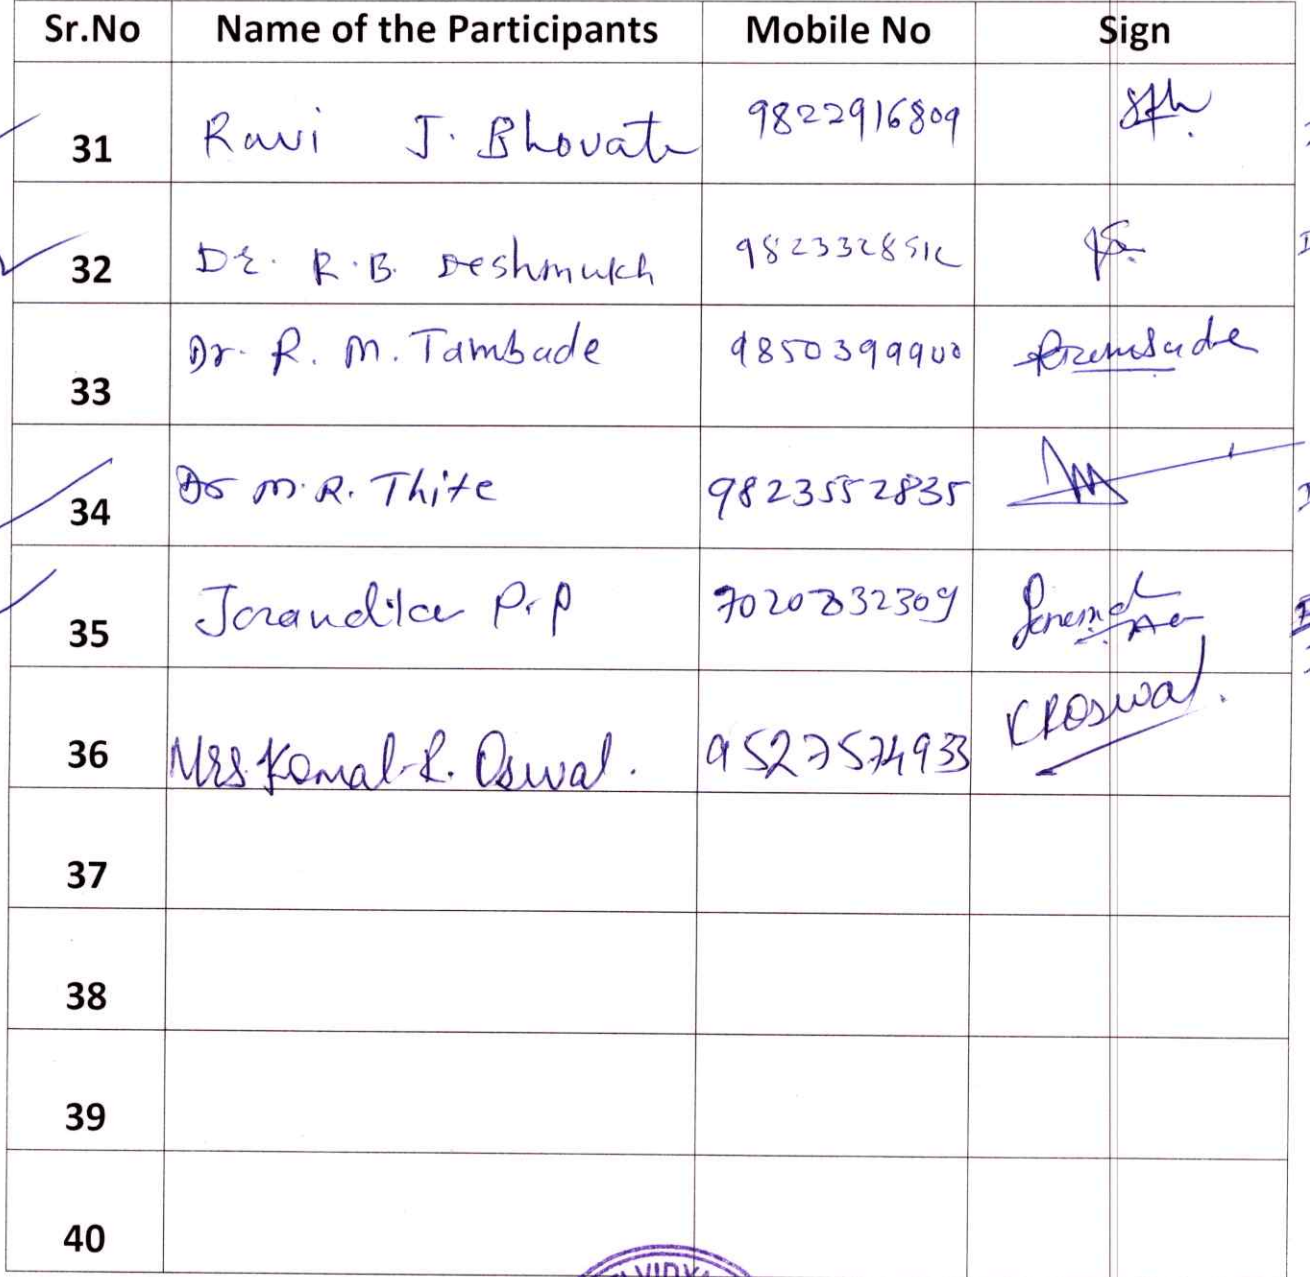 Sr.No Name of the Participants Mobile No Sign
31 Ravi J. Bhovate 9822916809
32 Dr. R.B. Deshmukh 9823328512
33 Dr. R. M. Tambade 9850399900
34 Dr M.R. Thite 9823552835
35 P.P 7020832309
36 Mrs. Komal R. Oswal. 9527574933 KROswal.
37
38
39
40